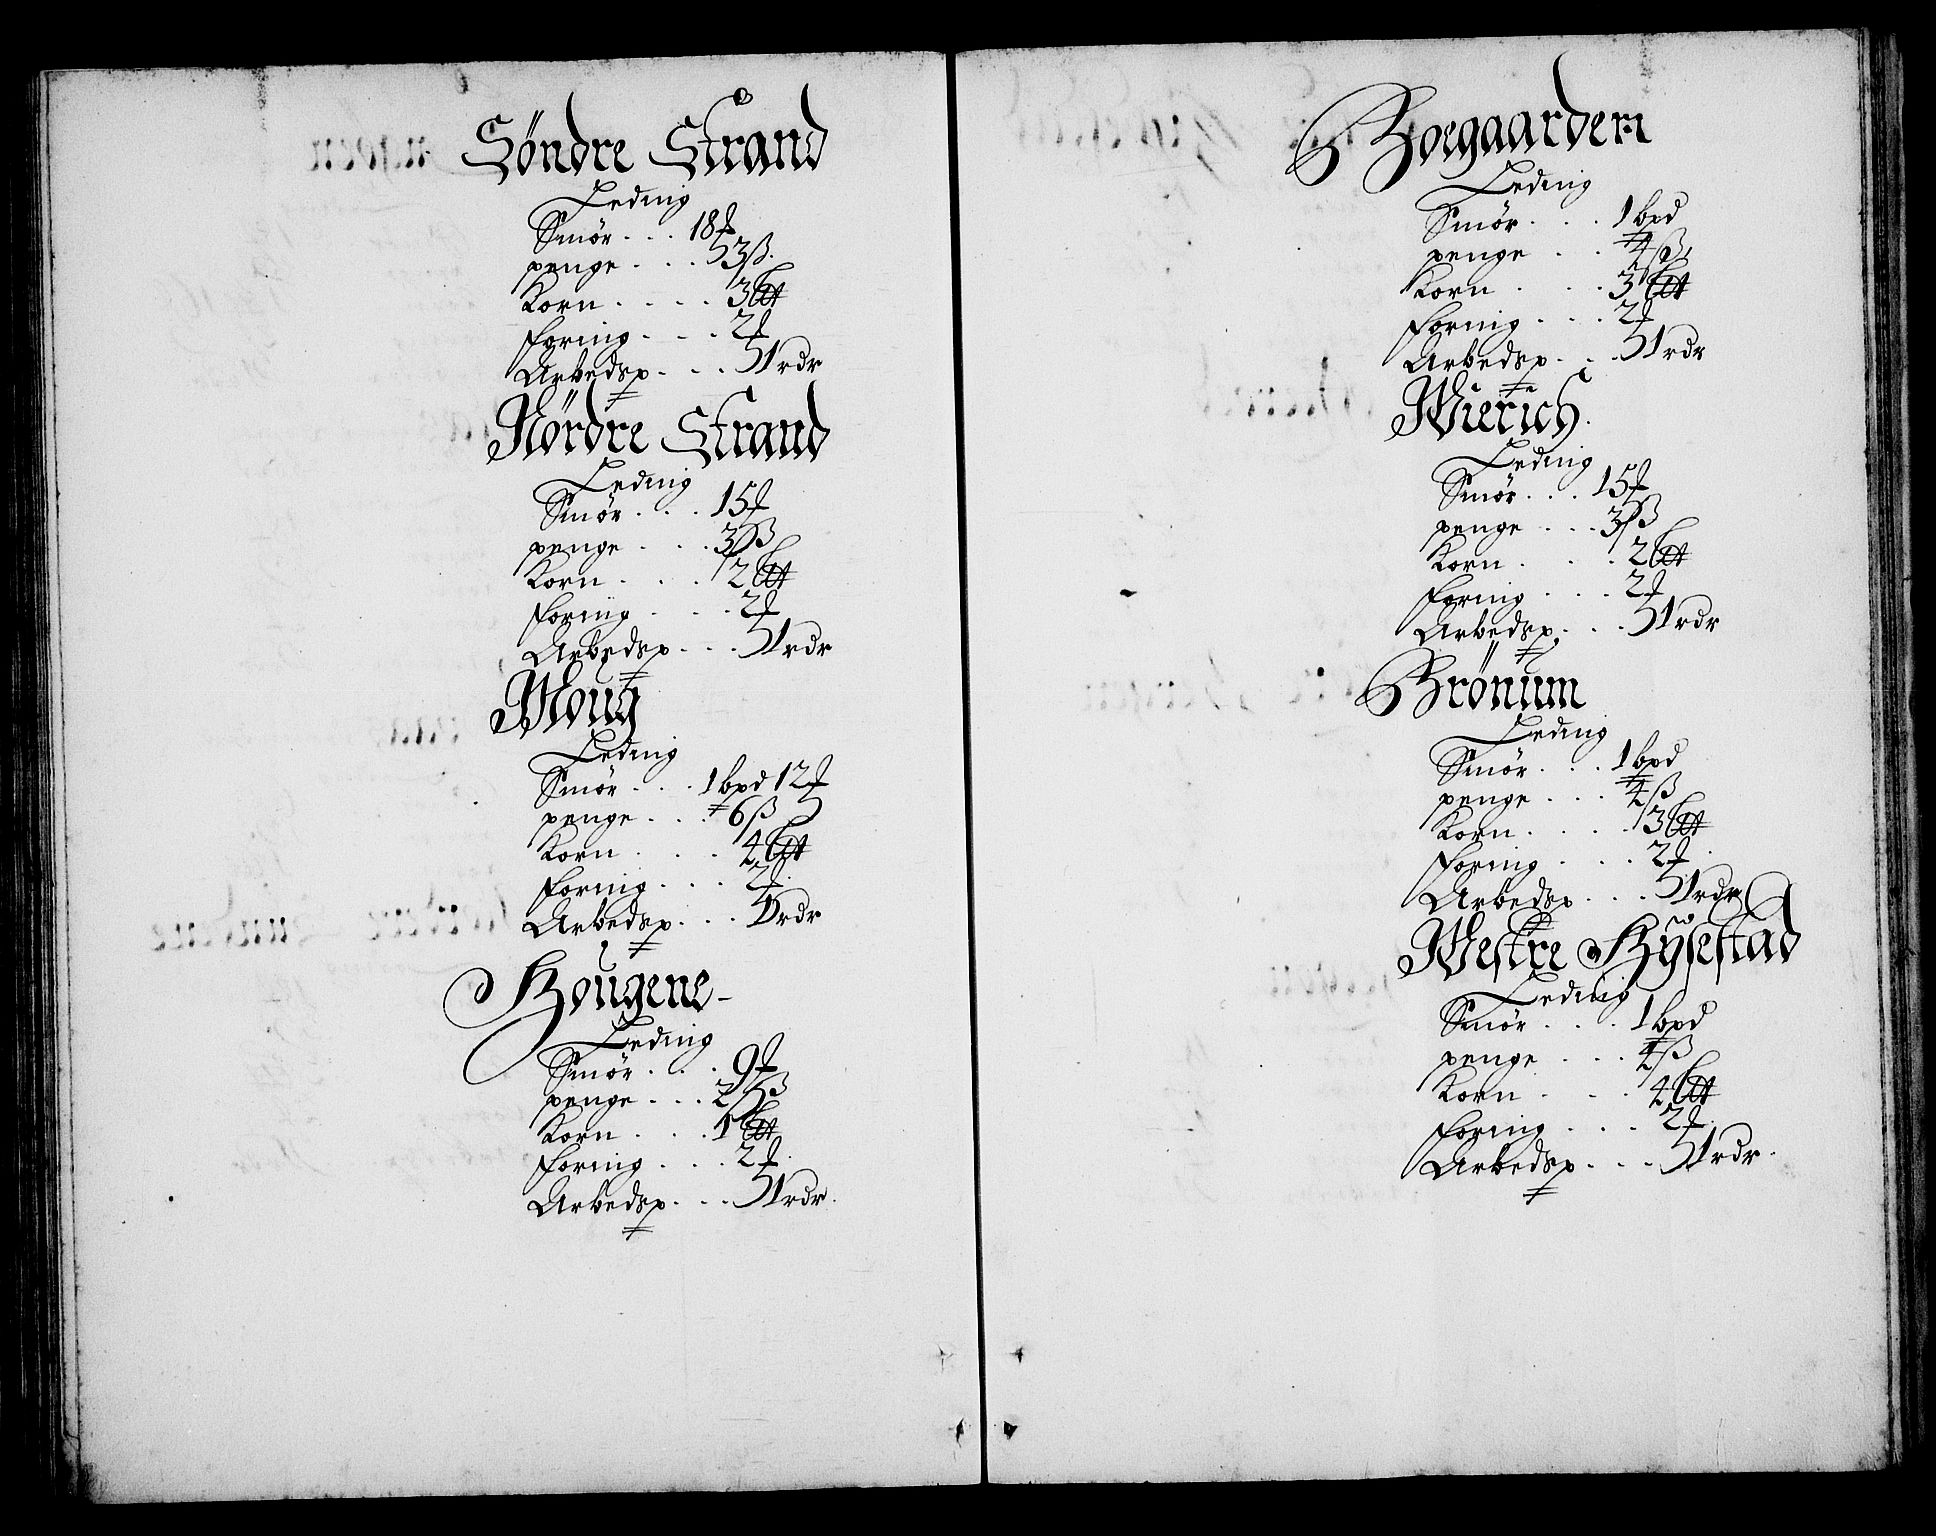 Söndre Strand
Leding
Smör . . . 18 ℔
penge . . . 3 ß.
Korn . . . . 3 Ltt
foring . . . 2 ℔
Arbedsp. . . . 1 rdr
Nördre Strand
Leding
Smör . . . 15 ℔
penge . . . 3 ß
Korn . . . . 2 Ltt
foring . . . 2 ℔
Arbedsp . . . 1 rdr
Moug
Leding
Smör . . . 1 bpd 12 ℔
penge . . . 6 ß
Korn . . . . 4 Ltt
foring . . . 2 ℔.
Arbedsp. . . . 1 rdr
Hougene
Leding
Smör . . . 9 ℔
penge . . . 2 ß
Korn . . . . 1 Ltt
foring . . . 2 ℔.
Arbedsp. . . . 1 rdr.
Boegaarden
Leding
Smör . . . 1 bpd
penge . . . 4 ß
Korn . . . . 3 Ltt
foring . . . 2 ℔
Arbedsp. . . . 1 rdr
Wierich.
Leding
Smör . . . 15 ℔
penge . . . 3 ß
Korn . . . . 2 Ltt
foring . . . 2 ℔
Arbedsp. . . . 1 rdr
Brönum
Leding
Smör . . . 1 bpd
penge . . . 4 ß
Korn . . . . 3 Ltt
foring . . . 2 ℔.
Arbedsp . . . 1 rdr
Westre
Leding
Smör . . . 1 bpd
penge . . . 4 ß
Korn . . . . 4 Ltt
foring . . . 2 ℔.
Arbedsp. . . . 1 rdr.